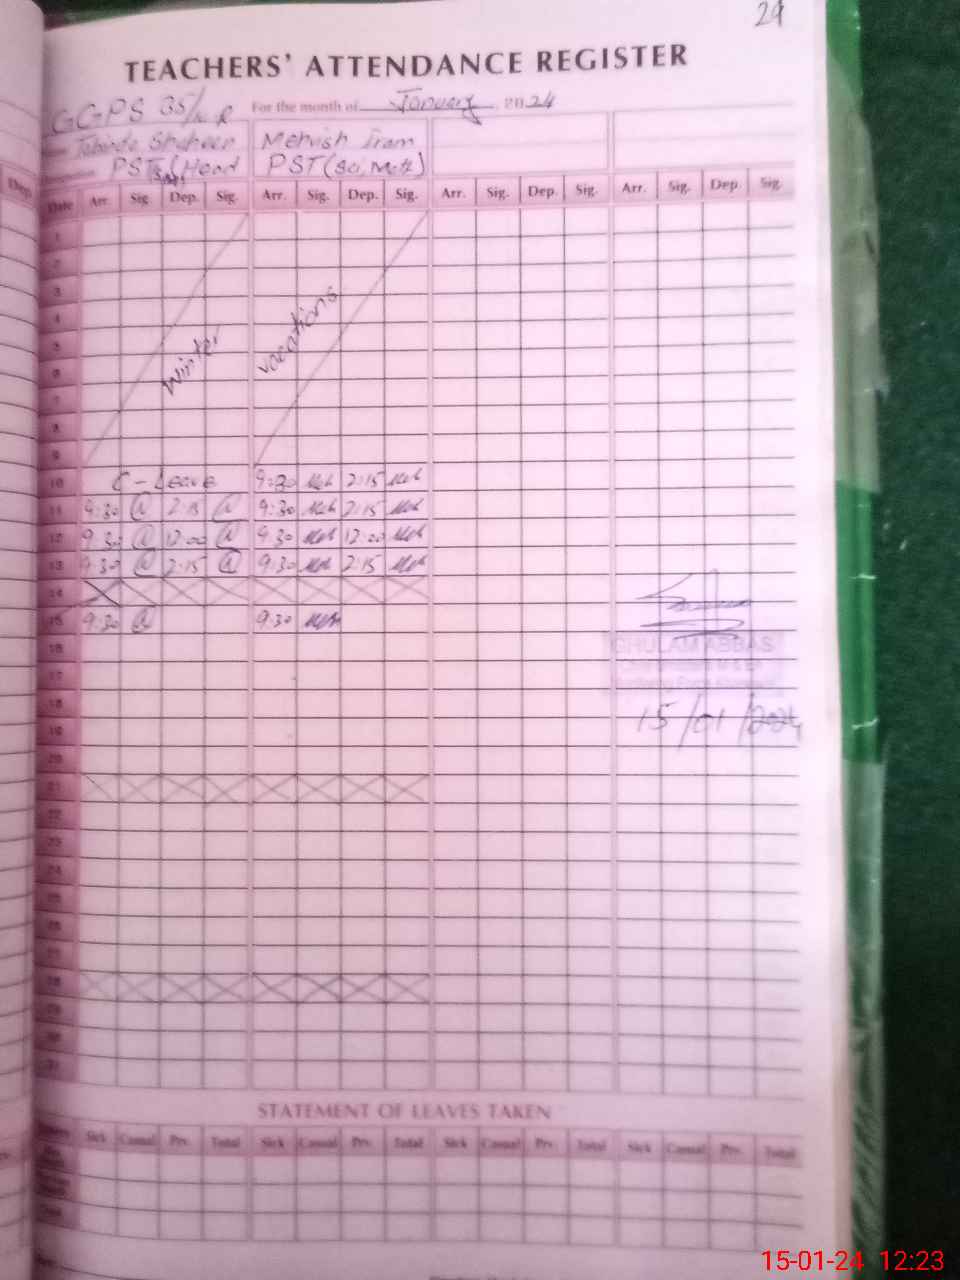 29
TEACHERS' ATTENDANCE REGISTER
GGPS 35/ R For the month of January, 2024
Shaheen Mehvish Iram
PST Head PST (Sci, Math)
Date Arr. Sig. Dep. Sig. Arr. Sig. Dep. Sig. Arr. Sig. Dep. Sig. Arr. Sig. Dep. Sig.
1
2
3
4
5
6
7
8
9
Winter vacations
10 C-Leave 9:30 Meh 2:15 Meh
11 9:30 @ 2:15 @ 9:30 Meh 2:15 Meh
12 9:30 @ 12:00 @ 9:30 Meh 12:00 Meh
13 9:30 @ 2:15 @ 9:30 Meh 2:15 Meh
14
15 9:30 @ 9:30 Meh
16
GHULAM ABBAS
17
18
15/01/2024
19
20
21
22
23
24
25
26
27
28
29
30
31
STATEMENT OF LEAVES TAKEN
Sick Casual Prv. Total Sick Casual Prv. Total Sick Casual Prv. Total Sick Casual Prv. Total
15-01-24 12:23